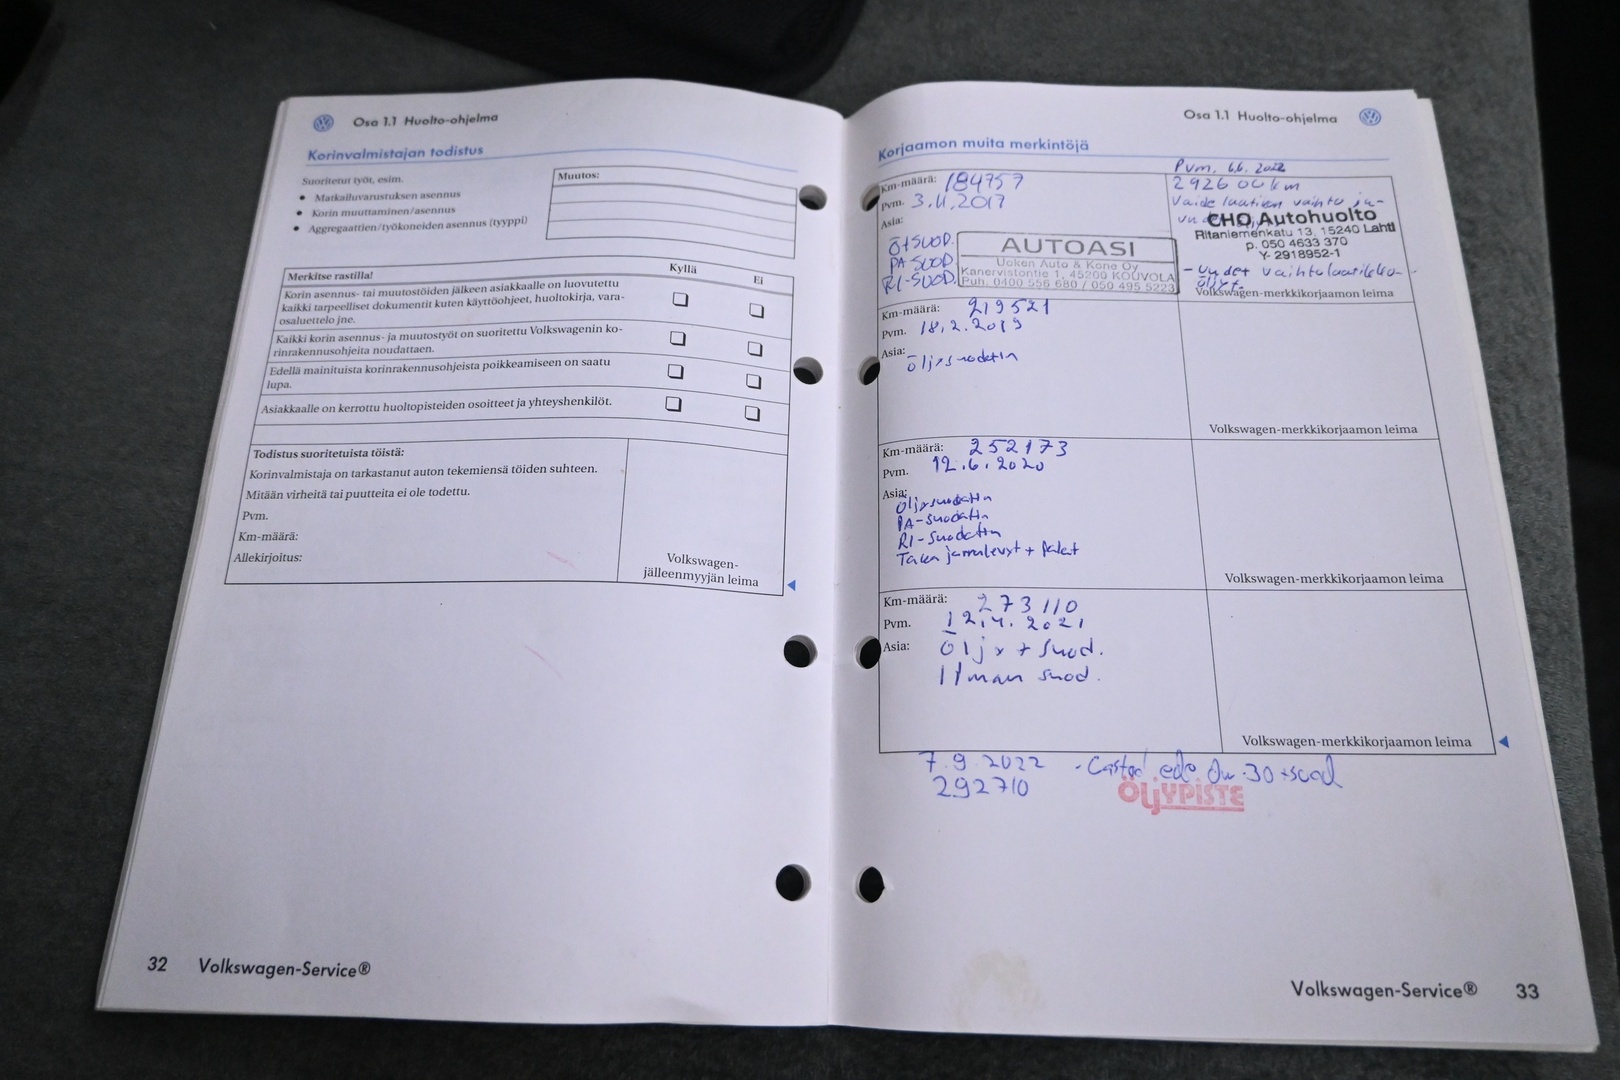 Osa 1.1 Huolto-ohjelma
Korinvalmistajan todistus
Suoritetut työt, esim.
• Matkailuvarustuksen asennus
• Korin muuttaminen/asennus
• Aggregaattien/työkoneiden asennus (tyyppi)
Muutos:
Merkitse rastilla!
Kyllä
Ei
Korin asennus- tai muutostöiden jälkeen asiakkaalle on luovutettu
kaikki tarpeelliset dokumentit kuten käyttöohjeet, huoltokirja, vara-
osaluettelo jne.
Kaikki korin asennus- ja muutostyöt on suoritettu Volkswagenin ko-
rinrakennusohjeita noudattaen.
Edellä mainituista korinrakennusohjeista poikkeamiseen on saatu
lupa.
Asiakkaalle on kerrottu huoltopisteiden osoitteet ja yhteyshenkilöt.
Todistus suoritetuista töistä:
Korinvalmistaja on tarkastanut auton tekemiensä töiden suhteen.
Mitään virheitä tai puutteita ei ole todettu.
Pvm.
Km-määrä:
Allekirjoitus:
Volkswagen-
jälleenmyyjän leima
32 Volkswagen-Service®
Osa 1.1 Huolto-ohjelma
Korjaamon muita merkintöjä
Km-määrä: 184757
Pvm. 3.11.2017
Asia:
Ö+SUOD.
PA-SUOD.
RI-SUOD.
AUTOASI
Uoken Auto & Kone Oy
Kanervistontie 1, 45200 KOUVOLA
Puh. 0400 556 680 / 050 495 5223
Pvm. 6.6.2022
292600km
Vaidelaatikon vaihto ja-
CHO Autohuolto
Ritaniemenkatu 13, 15240 Lahti
p. 050 4633 370
Y- 2918952-1
- uudet vaihtolaatikko-
öljyt.
Volkswagen-merkkikorjaamon leima
Km-määrä: 219521
Pvm. 18.2.2019
Asia:
Öljysuodatin
Volkswagen-merkkikorjaamon leima
Km-määrä: 252173
Pvm. 12.6.2020
Asia:
Öljysuodatin
PA-suodatin
RI-suodatin
Taka jarrulevyt + palat
Volkswagen-merkkikorjaamon leima
Km-määrä: 273110
Pvm. 12.4.2021
Asia: Öljy + suod.
Ilman suod.
Volkswagen-merkkikorjaamon leima
7.9.2022 - Castrol edge 0w-30 + suod
292710
ÖLJYPISTE
Volkswagen-Service® 33